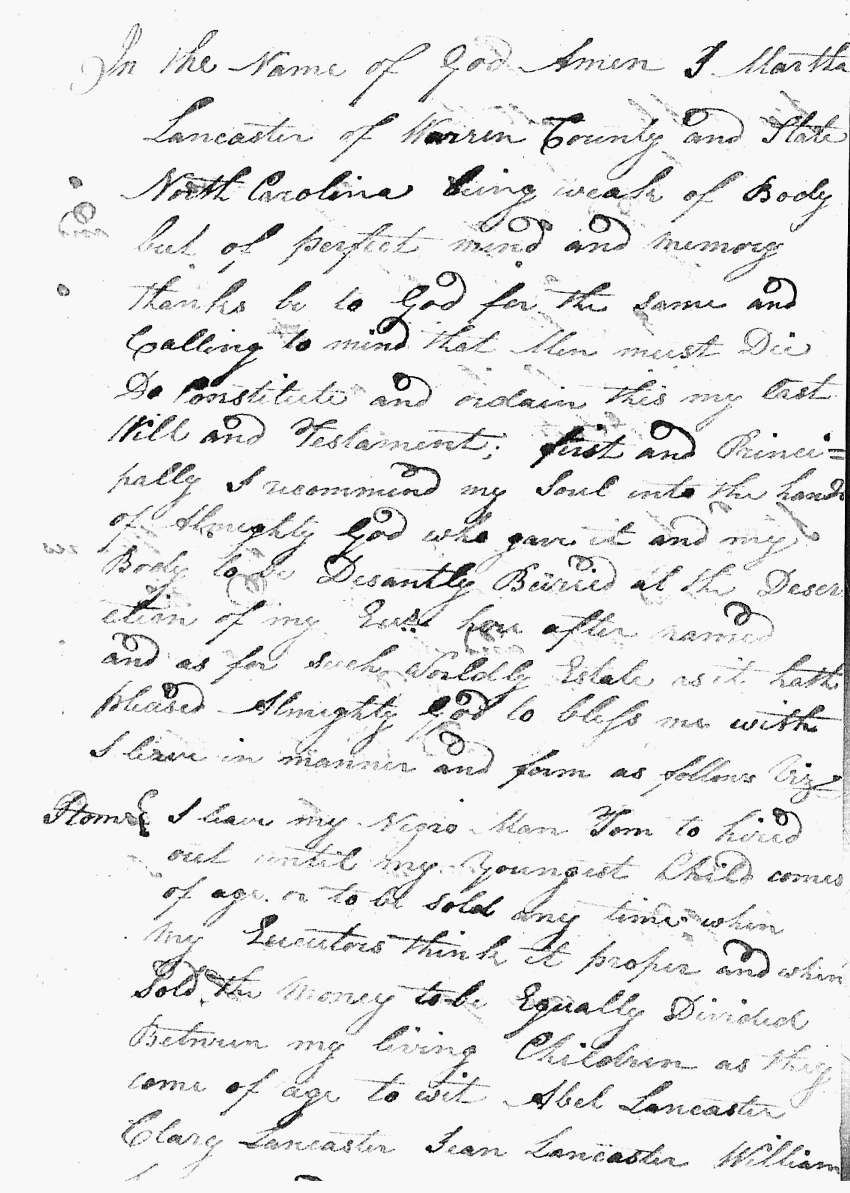 In the Name of God Amen I Martha
Lancaster of Warren County and State
North Carolina being weak of Body
but of perfect mind and memory
thanks be to God for the same and
Calling to mind that Men must Die
Do Constitute and ordain this my last
Will and Testament; first and Princi=
pally I recommend my Soul into the hands
of Almighty God who gave it and my
Body to be Desantly Buried at the Descr
etion of my Exrs. here after named
and as for such Worldly Estate as it hath
pleased Almighty God to bless me with
I leave in manner and form as follows Viz
Item I leave my Negro Man Tom to hired
out until my Youngest Child comes
of age or to be sold any time when
my Executors think it proper and when
Sold the Money to be Equally Divided
Between my living Children as they
come of age to wit Abel Lancaster
Clary Lancaster Jean Lancaster William